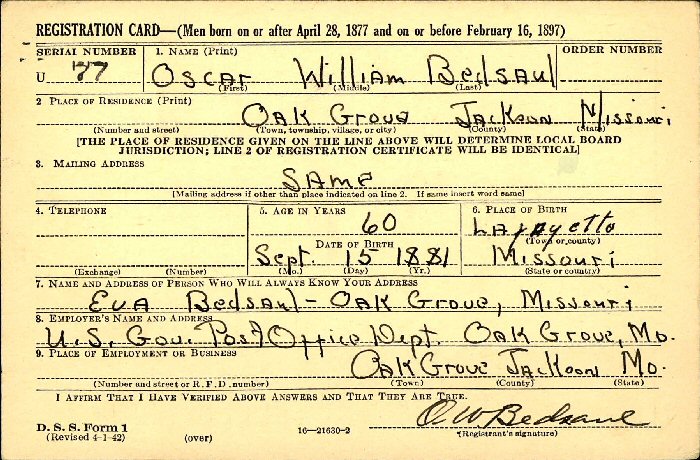 REGISTRATION CARD—(Men born on or after April 28, 1877 and on or before February 16, 1897)
SERIAL NUMBER 1. NAME (Print) ORDER NUMBER
U 77 OSCAR William Bedsaul
(First) (Middle) (Last)
2 PLACE OF RESIDENCE (Print)
OAK Grove JACKSON Missouri
(Number and street) (Town, township, village, or city) (County) (State)
[THE PLACE OF RESIDENCE GIVEN ON THE LINE ABOVE WILL DETERMINE LOCAL BOARD
JURISDICTION; LINE 2 OF REGISTRATION CERTIFICATE WILL BE IDENTICAL]
3. MAILING ADDRESS
SAMe
[Mailing address if other than place indicated on line 2. If same insert word same]
4. TELEPHONE 5. AGE IN YEARS 6. PLACE OF BIRTH
60 LAfayette
DATE OF BIRTH (Town or county)
Sept. 15 1881 Missouri
(Exchange) (Number) (Mo.) (Day) (Yr.) (State or country)
7. NAME AND ADDRESS OF PERSON WHO WILL ALWAYS KNOW YOUR ADDRESS
Eva Bedsaul - OAK Grove, Missouri
8. EMPLOYER'S NAME AND ADDRESS
U.S. Gov. Post Office Dept. OAK Grove, Mo.
9. PLACE OF EMPLOYMENT OR BUSINESS
OAK Grove JACKSON Mo.
(Number and street or R. F. D. number) (Town) (County) (State)
I AFFIRM THAT I HAVE VERIFIED ABOVE ANSWERS AND THAT THEY ARE TRUE.
O. W. Bedsaul
D. S. S. Form 1
(Revised 4-1-42) (over) 16—21630-2 (Registrant's signature)